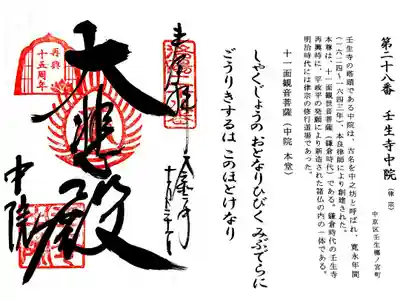 第二十八番 壬生寺中院 (律宗)
中京区壬生梛ノ宮町
壬生寺の塔頭である中院は、古名を中之坊と呼ばれ、寛永年間
(一六二四〜一六四三年)、本良律師により創建された。
本尊は、十一面観世音菩薩(鎌倉時代)である。鎌倉時代の壬生寺
再興時に、平政平の発願により新造された諸仏の内の一体である。
明治時代には律宗の修行道場であった。
十一面観音菩薩(中院 本堂)
しゃくじょうの おとなりひびく みぶでらに
ごうりきするは このほとけなり
大悲殿
中院
再興
十五周年